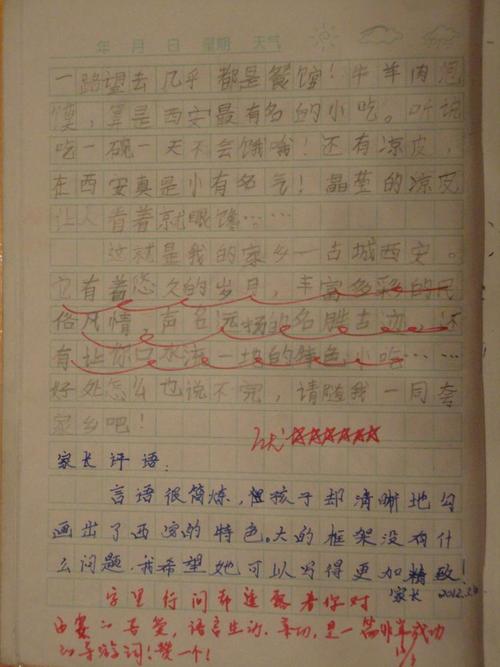 年 月 日 星期 天气
一路望去几乎都是餐馆！牛羊肉泡
馍，算是西安最有名的小吃。听说
吃一碗一天不会饿哦！还有凉皮，
在西安真是小有名气！晶莹的凉皮
让人看着就眼馋……
这就是我的家乡—古城西安。
它有着悠久的岁月，丰富多彩的民
俗风情，声名远扬的名胜古迹，还
有让你口水流一地的特色小吃……
好处怎么也说不完，请随我一同
家乡吧！
优☆☆☆☆☆☆
家长评语：
言语很简炼，但孩子却清晰地勾
画出了西安的特色。大的框架没有什
么问题。我希望她可以写得更加精致！
家长 2012.
字里行间都透露着你对
西安的喜爱，语言生动、亲切，是一篇非常成功
的导游词！赞一个！